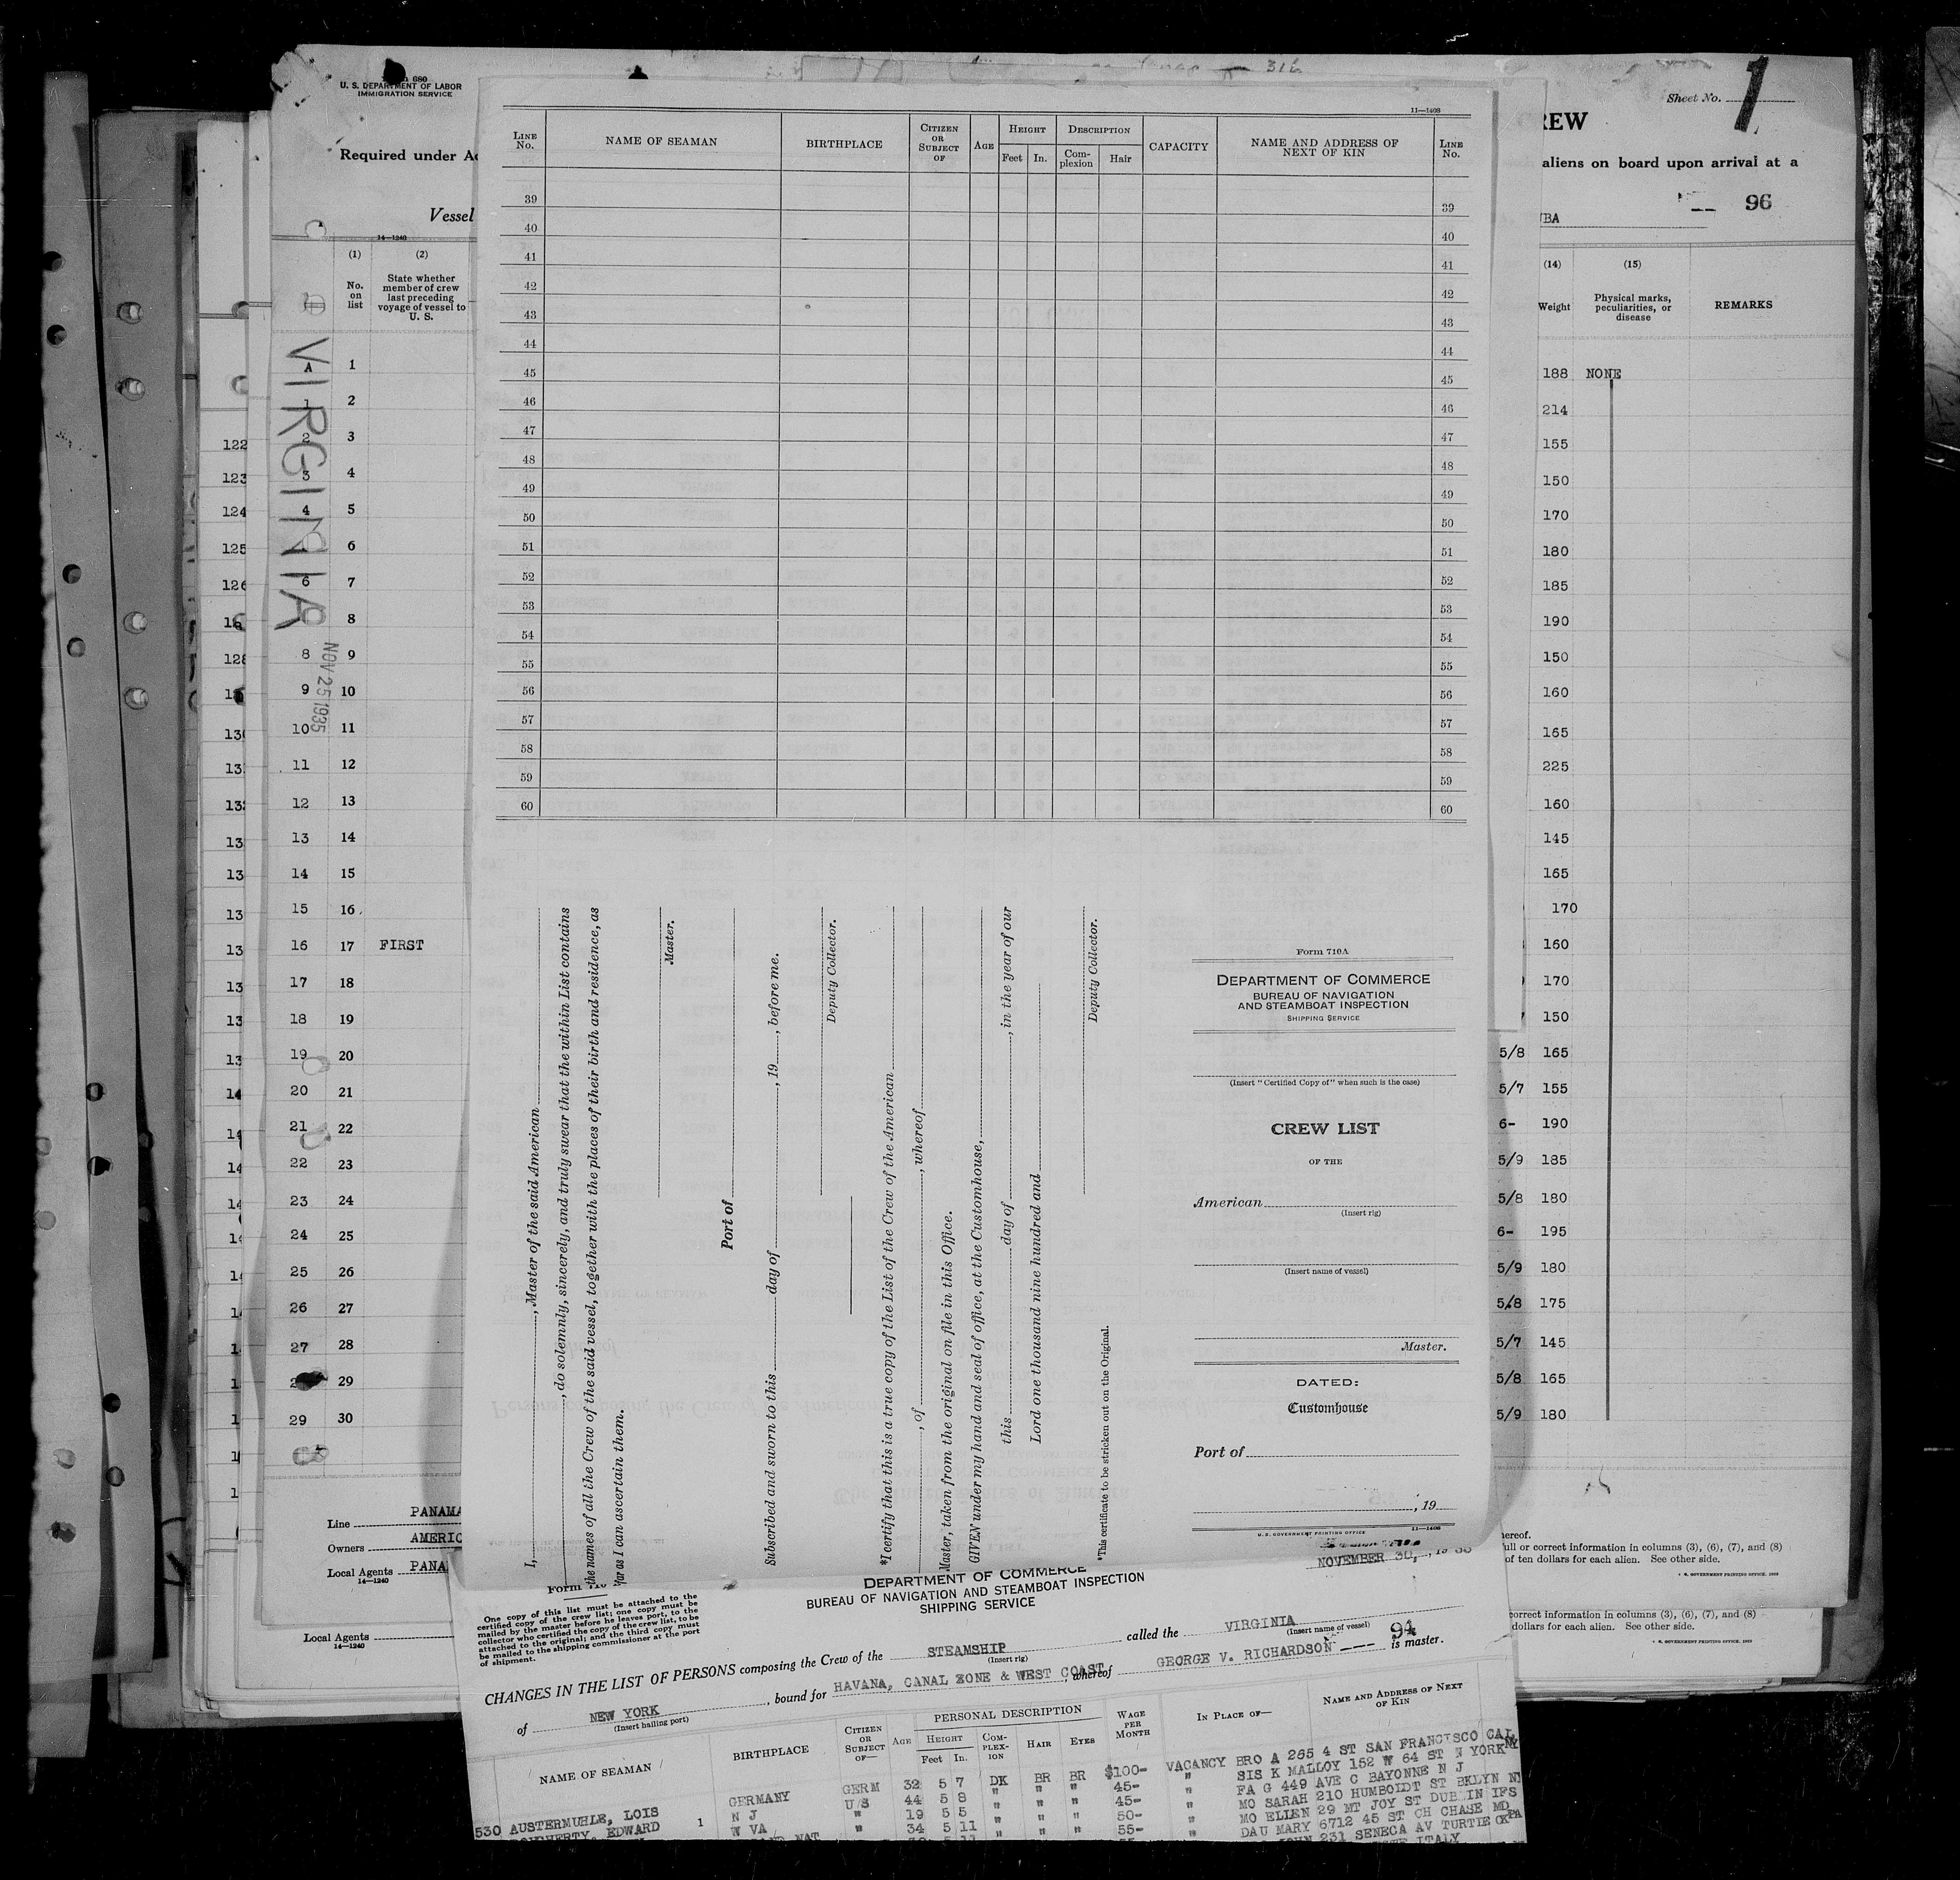 316
Form 680
U. S. DEPARTMENT OF LABOR
IMMIGRATION SERVICE
Required under Ac
Vessel
14—1240
(1)
(2)
No.
on
list
State whether
member of crew
last preceding
voyage of vessel to
U. S.
VIRGINIA
NOV 25 1935
A 1
1 2
2 3
3 4
4 5
6
6 7
8
8 9
9 10
10 11
11 12
12 13
13 14
14 15
15 16
16 17 FIRST
17 18
18 19
19 20
20 21
21 22
22 23
23 24
24 25
25 26
26 27
27 28
29
29 30
122
123
124
125
Line PANAMA
Owners AMERIC
Local Agents PANA
14—1240
Local Agents
14—1240
11—1408
LINE No.
NAME OF SEAMAN
BIRTHPLACE
CITIZEN OR SUBJECT OF
AGE
HEIGHT
Feet In.
DESCRIPTION
Complexion Hair
CAPACITY
NAME AND ADDRESS OF NEXT OF KIN
LINE No.
39 39
40 40
41 41
42 42
43 43
44 44
45 45
46 46
47 47
48 48
49 49
50 50
51 51
52 52
53 53
54 54
55 55
56 56
57 57
58 58
59 59
60 60
I, , Master of the said American
, do solemnly, sincerely, and truly swear that the within List contains
the names of all the Crew of the said vessel, together with the places of their birth and residence, as
far as I can ascertain them.
Master.
Port of
Subscribed and sworn to this day of , 19 , before me.
Deputy Collector.
*I certify that this is a true copy of the List of the Crew of the American
, of , whereof
Master, taken from the original on file in this Office.
GIVEN under my hand and seal of office, at the Customhouse,
this day of , in the year of our
Lord one thousand nine hundred and
Deputy Collector.
*This certificate to be stricken out on the Original.
Form 710A
DEPARTMENT OF COMMERCE
BUREAU OF NAVIGATION
AND STEAMBOAT INSPECTION
SHIPPING SERVICE
(Insert "Certified Copy of" when such is the case)
CREW LIST
OF THE
American
(Insert rig)
(Insert name of vessel)
Master.
DATED:
Customhouse
Port of
, 19
U. S. GOVERNMENT PRINTING OFFICE 11—1408
Sheet No. 1
REW
aliens on board upon arrival at a
96
UBA
(14)
(15)
Weight
Physical marks,
peculiarities, or
disease
REMARKS
188 NONE
214
155
150
170
180
185
190
150
160
165
225
160
145
165
170
160
170
150
5/8 165
5/7 155
6- 190
5/9 185
5/8 180
6- 195
5/9 180
5/8 175
5/7 145
5/8 165
5/9 180
hereof.
full or correct information in columns (3), (6), (7), and (8)
of ten dollars for each alien. See other side.
correct information in columns (3), (6), (7), and (8)
dollars for each alien. See other side.
NOVEMBER 30, , 19 35
Form 710
DEPARTMENT OF COMMERCE
BUREAU OF NAVIGATION AND STEAMBOAT INSPECTION
SHIPPING SERVICE
One copy of this list must be attached to the
certified copy of the crew list; one copy must be
mailed by the master before he leaves port, to the
collector who certified the copy of the crew list, to be
attached to the original; and the third copy must
be mailed to the shipping commissioner at the port
of shipment.
CHANGES IN THE LIST OF PERSONS composing the Crew of the STEAMSHIP called the VIRGINIA
(Insert rig) (Insert name of vessel)
94
of NEW YORK , bound for HAVANA, CANAL ZONE & WEST COAST, whereof GEORGE V. RICHARDSON is master.
(Insert hailing port)
NAME OF SEAMAN
BIRTHPLACE
CITIZEN OR SUBJECT OF—
AGE
PERSONAL DESCRIPTION
HEIGHT
Feet In.
COMPLEXION
HAIR
EYES
WAGE PER MONTH
IN PLACE OF—
NAME AND ADDRESS OF NEXT OF KIN
530 AUSTERMUHLE, LOIS GERMANY GERM 32 5 7 DK BR BR $100- VACANCY BRO A 265 4 ST SAN FRANCISCO CAL
EDWARD 1 N J U S 44 5 8 " " " 45- " SIS K MALLOY 152 W 64 ST N YORK NY
W VA " 19 5 5 " " " 45- " FA G 449 AVE C BAYONNE N J
34 5 11 " " " 50- " MO SARAH 210 HUMBOLDT ST BKLYN NY
55- " MO ELLEN 29 MT JOY ST DUBLIN IFS
DAU MARY 6712 45 ST CH CHASE MD
JOHN 231 SENECA AV TURTLE CK PA
ITALY